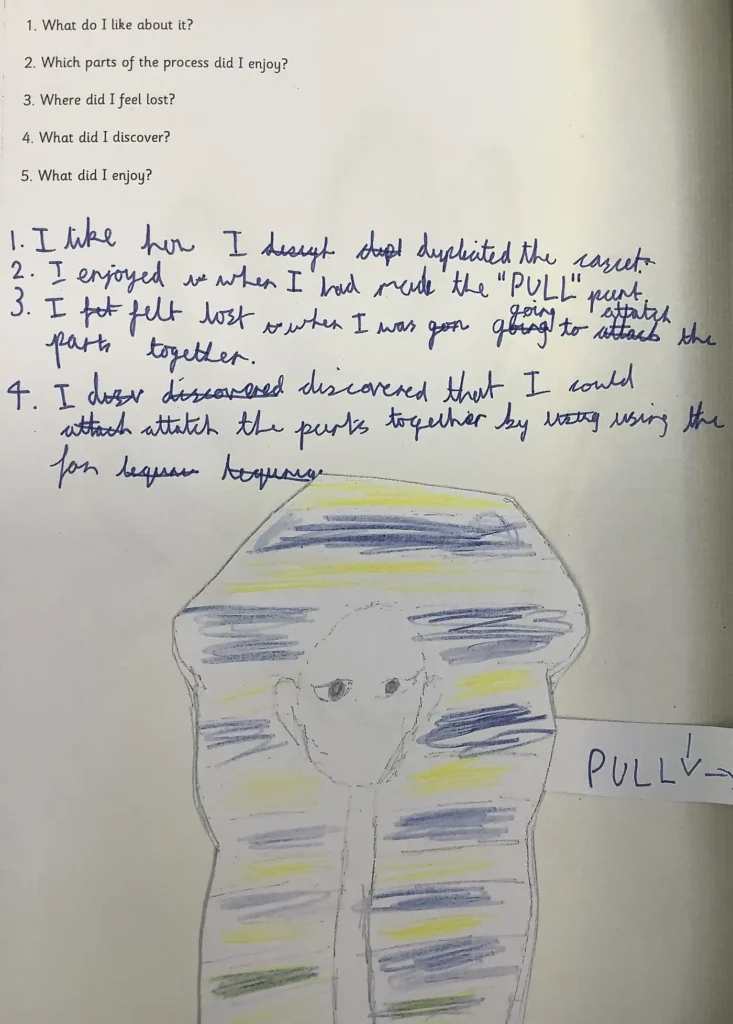 1. What do I like about it?
2. Which parts of the process did I enjoy?
3. Where did I feel lost?
4. What did I discover?
5. What did I enjoy?
1. I like how I duplicated the casket.
2. I enjoyed when I had made the "PULL" part.
3. I felt lost when I was going to attatch the
parts together.
4. I discovered that I could
attatch the parts together by using the
PULL